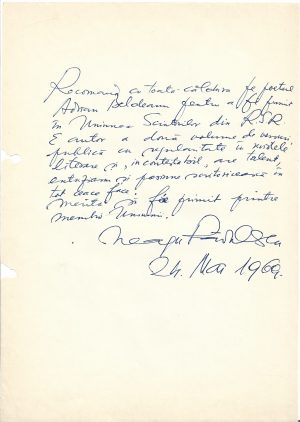 Recomand cu toată căldura pe poetul
Adrian Beldeanu pentru a fi primit
în Uniunea Scriitorilor din RSR
E autor a două volume de versuri
publică cu regularitate în revistele
literare și, incontestabil, are talent,
entuziasm și pasiune scriitoricească în
tot ceea ce face.
Merită să fie primit printre
membrii Uniunii.
Neagu Rădulescu
24. Mai 1969.